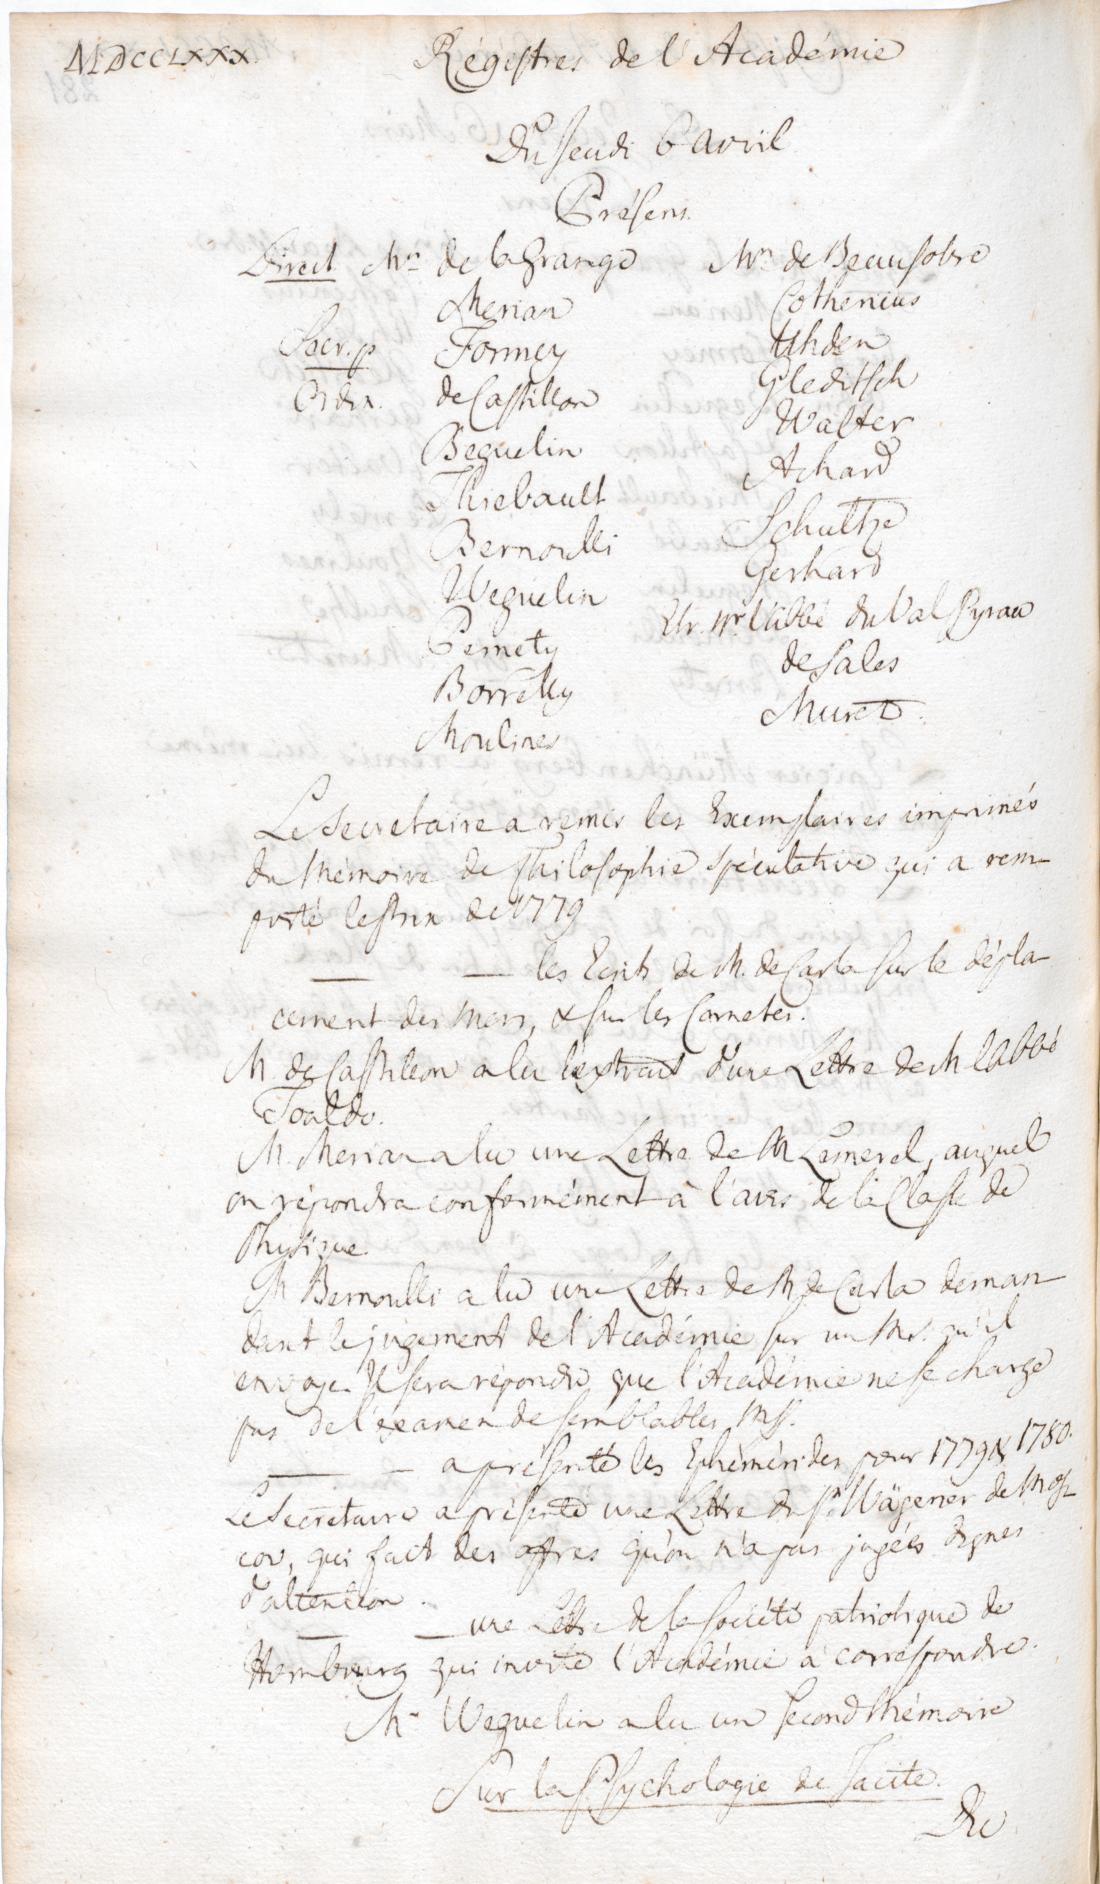 MDCCLXXX
Régistres de l'Académie
Du Jeudi 6 Avril
Présens
Direct. Mrs de la Grange
Merian
Secr. p. Formey
Ordin. de Castillon
Beguelin
Thiebault
Bernoulli
Weguelin
Pernety
Borrelly
Moulines
Mrs de Beausobre
Cothenius
Uhden
Gleditsch
Walter
Achard
Schultze
Gerhard
Etr. Mr l'Abbé du Val Pyrau
de Sales
Muret.
Le Secretaire a remis les Exemplaires imprimés
du Mémoire de Philosophie spéculative qui a rem-
porté le Prix de 1779
— — les Ecrits de M. de Carla sur le dépla-
cement des Mers, & sur les Cometes.
M. de Castillon a lu l'extrait d'une Lettre de M l'abbé
Toaldo.
M. Merian a lu une Lettre de M Lemerel, auquel
on répondra conformément à l'avis de la Classe de
Physique.
M Bernoulli a lu une Lettre de M de Carla deman-
dant le jugement de l'Académie sur un Ms. qu'il
envoye. Il sera répondu que l'Académie ne se charge
pas de l'examen de semblables Mss.
— — a présenté les Ephémérides pour 1779 & 1780.
Le Secretaire a présenté une Lettre du Sr. Wägener de Mos-
cou, qui fait des offres qu'on n'a pas jugées dignes
d'attention.
— — une Lettre de la Société patriotique de
Hombourg qui invite l'Académie à correspondre.
Mr Weguelin a lu un second Mémoire
Sur la Psychologie de Tacite.
Du